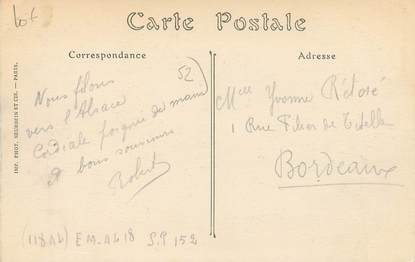 60f
Carte Postale
Correspondance
Adresse
52
Nous filons
vers l'Alsace
Cordiale poignée de main
et bons souvenirs
Robert
Melle Yvonne Rétoré
1 Rue de
Bordeaux
IMP. PHOT. NEURDEIN ET CIE. — PARIS.
(118 Ab) EM. A618 S.P 152